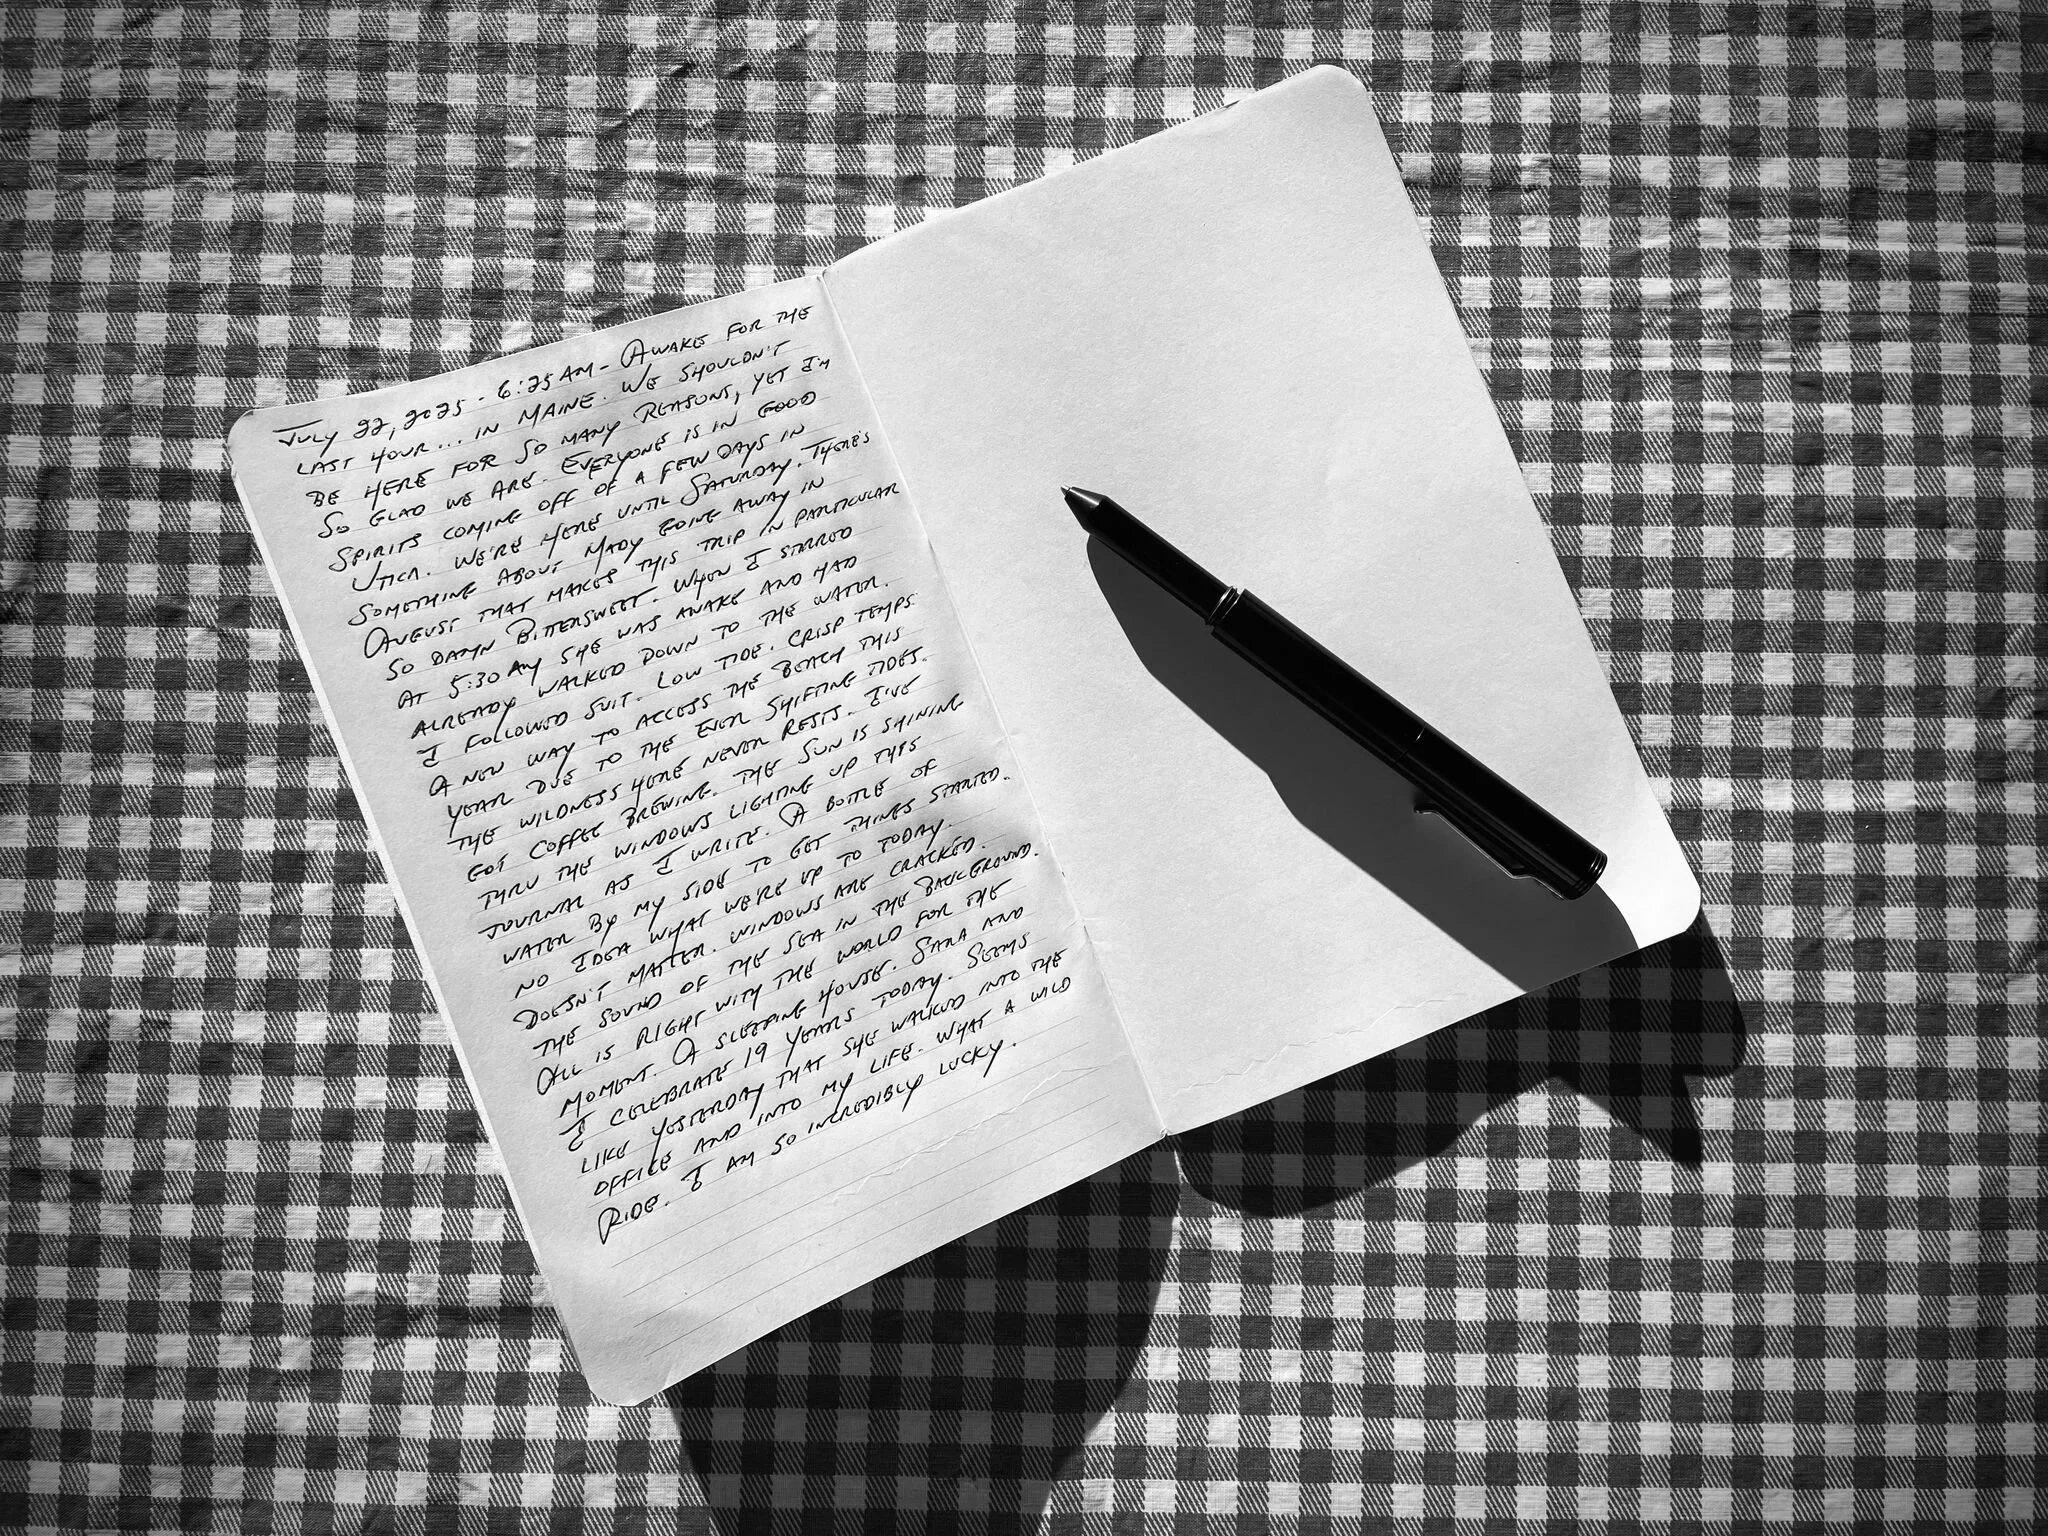 July 22, 2025 - 6:25 AM - Awake for the
last hour... in Maine. We shouldn't
be here for so many reasons, yet I'm
so glad we are. Everyone is in good
spirits coming off of a few days in
Utica. We're here until Saturday. There's
something about Mady going away in
August that makes this trip in particular
so damn bittersweet. When I stirred
at 5:30 AM she was awake and had
already walked down to the water.
I followed suit. Low tide. Crisp temps.
A new way to access the beach this
year due to the ever shifting tides.
The wildness here never rests. I've
got coffee brewing. The sun is shining
thru the windows lighting up this
journal as I write. A bottle of
water by my side to get things started.
No idea what we're up to today.
Doesn't matter. Windows are cracked.
The sound of the sea in the background.
All is right with the world for the
moment. A sleeping house. Sara and
I celebrate 19 years today. Seems
like yesterday that she walked into the
office and into my life. What a wild
ride. I am so incredibly lucky.